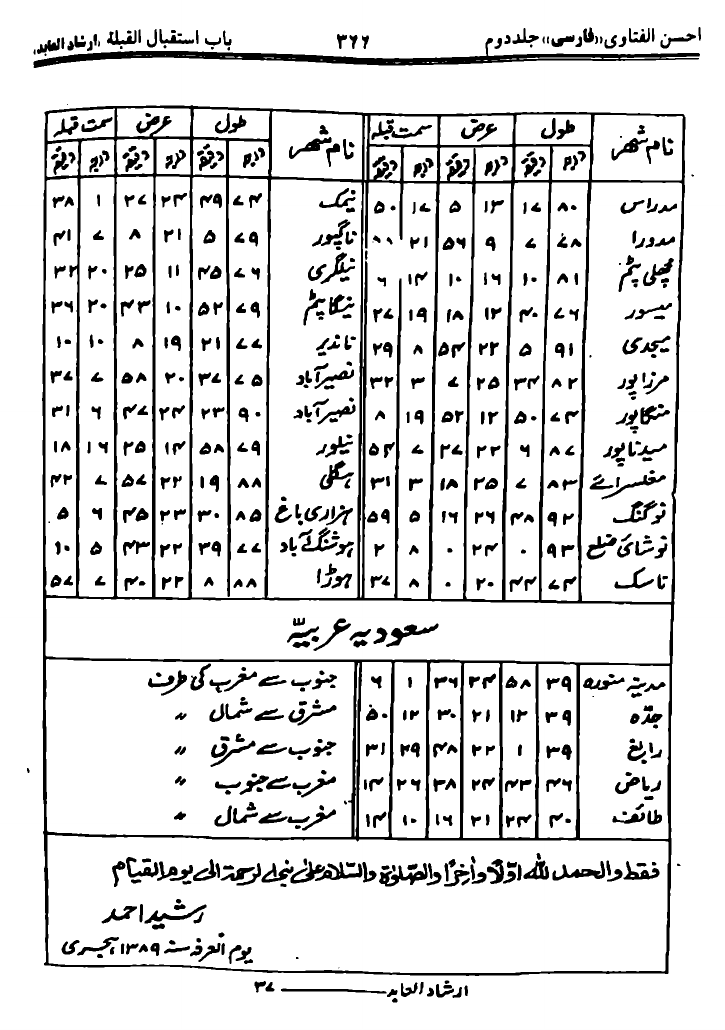 احسن الفتاوی «فارسی» جلد دوم ۳۶۶ باب استقبال القبلة «ارشاد العابد»
نام شهر طول عرض سمت قبلہ نام شهر طول عرض سمت قبلہ
درجہ دقیقہ درجہ دقیقہ درجہ دقیقہ درجہ دقیقہ درجہ دقیقہ درجہ دقیقہ
مدراس ۸۰ ۱۷ ۱۳ ۵ ۱۷ ۵۰ نیمک ۷۴ ۴۹ ۲۴ ۲۷ ۱ ۳۸
مدورا ۷۸ ۷ ۹ ۵۶ ۲۱ ناگپور ۷۹ ۵ ۲۱ ۸ ۷ ۴۱
مچھلی پٹم ۸۱ ۱۰ ۱۶ ۱۰ ۱۴ ۶ نیلگری ۷۶ ۴۵ ۱۱ ۲۵ ۲۰ ۳۲
میسور ۷۶ ۴۰ ۱۲ ۱۸ ۱۹ ۲۷ نیگاپٹم ۷۹ ۵۲ ۱۰ ۴۳ ۲۰ ۳۶
میجدی ۹۱ ۵ ۲۲ ۵۴ ۸ ۲۹ ناندیر ۷۷ ۲۱ ۱۹ ۸ ۱۰ ۱۰
مرزاپور ۸۲ ۳۴ ۲۵ ۷ ۳ ۳۲ نصیرآباد ۷۵ ۳۷ ۲۰ ۵۸ ۷ ۳۷
منگاپور ۷۴ ۵۰ ۱۲ ۵۲ ۱۹ ۸ نصیرآباد ۹۰ ۲۳ ۲۴ ۴۷ ۶ ۳۱
میدناپور ۸۷ ۶ ۲۲ ۲۷ ۷ ۵۴ نیلور ۷۹ ۵۸ ۱۴ ۲۵ ۱۶ ۱۸
مغلسرائے ۸۳ ۷ ۲۵ ۱۸ ۳ ۳۱ ہگلی ۸۸ ۱۹ ۲۲ ۵۷ ۷ ۴۲
نوگنگ ۹۲ ۴۸ ۲۶ ۱۶ ۵ ۵۹ ہزاری باغ ۸۵ ۳۰ ۲۳ ۴۵ ۶ ۵
نوشائ ضلع ۹۳ ۰ ۲۴ ۰ ۸ ۲ ہوشنگ آباد ۷۷ ۳۹ ۲۲ ۴۳ ۵ ۱۰
ناسک ۷۴ ۴۴ ۲۰ ۰ ۸ ۳۷ ہوڑا ۸۸ ۸ ۲۲ ۴۰ ۷ ۵۷
سعودیہ عربیّہ
مدینہ منورہ ۳۹ ۵۸ ۲۴ ۳۶ ۱ ۶ جنوب سے مغرب کی طرف
جدّہ ۳۹ ۱۲ ۲۱ ۳۰ ۱۲ ۵۰ مشرق سے شمال 〃
رابغ ۳۹ ۱ ۲۲ ۴۸ ۲۹ ۳۱ جنوب سے مشرق 〃
ریاض ۴۶ ۴۳ ۲۴ ۳۸ ۲۶ ۱۴ مغرب سے جنوب 〃
طائف ۴۰ ۲۴ ۲۱ ۱۶ ۱۰ ۱۴ مغرب سے شمال 〃
فقط والحمد للہ اوّلاً وآخرًا والصّلوٰۃ والسّلام علیٰ نبی الرحمۃ الیٰ یوم القیام
رشید احمد
یوم العرفہ سنہ ۱۳۸۹ ہجری
ارشاد العابد ــــــ ۳۷